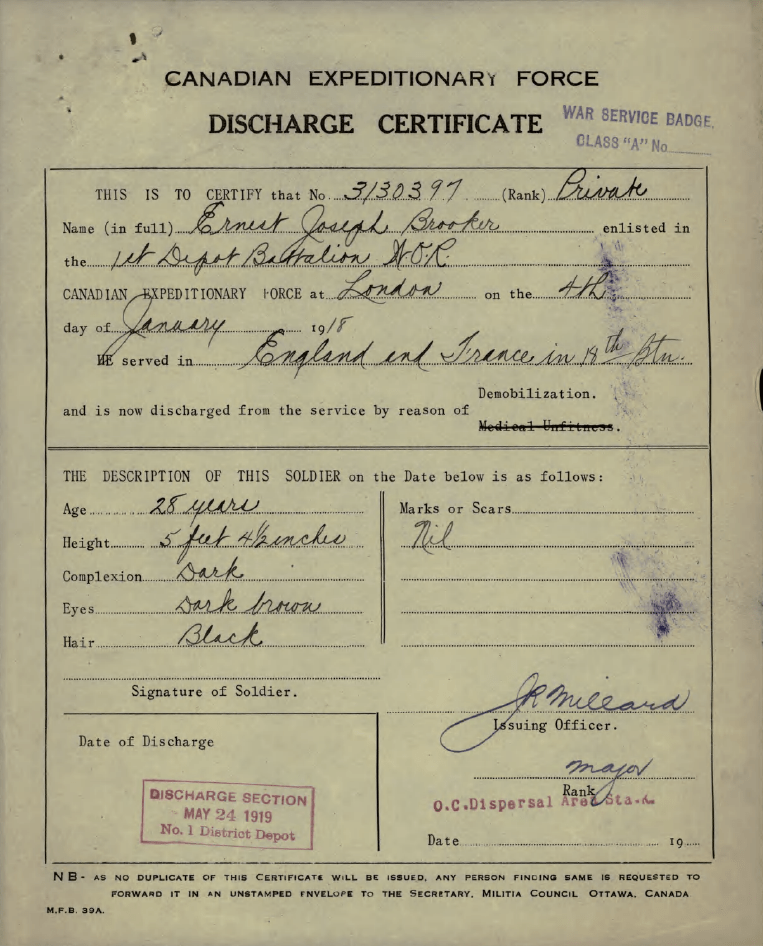 CANADIAN EXPEDITIONARY FORCE
DISCHARGE CERTIFICATE
WAR SERVICE BADGE,
CLASS "A" No
THIS IS TO CERTIFY that No. 3130397 (Rank) Private
Name (in full) Ernest Joseph Brooker enlisted in
the 1st Depot Battalion W.O.R.
CANADIAN EXPEDITIONARY FORCE at London on the 4th
day of January 1918
HE served in England and France in 18th Btn.
and is now discharged from the service by reason of Demobilization.
Medical Unfitness.
THE DESCRIPTION OF THIS SOLDIER on the Date below is as follows:
Age 28 years
Height 5 feet 4½ inches
Complexion Dark
Eyes Dark brown
Hair Black
Marks or Scars
Nil
Signature of Soldier.
JR Millard
Issuing Officer.
Major
Rank
O.C. Dispersal Area Sta. K.
Date 19
Date of Discharge
DISCHARGE SECTION
MAY 24 1919
No. 1 District Depot
NB- AS NO DUPLICATE OF THIS CERTIFICATE WILL BE ISSUED, ANY PERSON FINDING SAME IS REQUESTED TO
FORWARD IT IN AN UNSTAMPED ENVELOPE TO THE SECRETARY, MILITIA COUNCIL OTTAWA, CANADA
M.F.B. 39A.